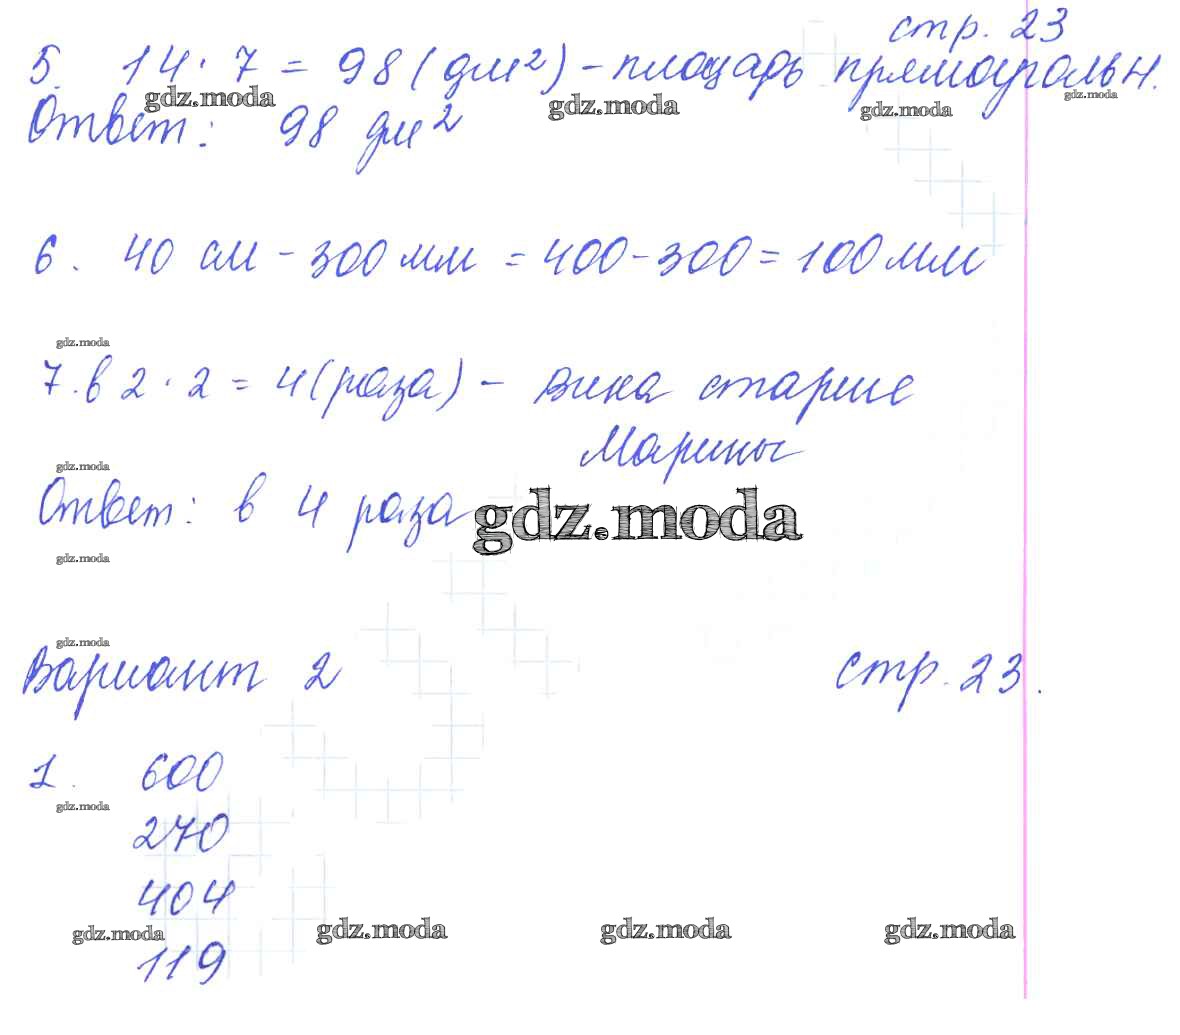 стр. 23
5. 14 · 7 = 98 (дм²) - площадь прямоугольн.
gdz.moda gdz.moda gdz.moda gdz.moda
Ответ: 98 дм²
6. 40 см - 300 мм = 400 - 300 = 100 мм
gdz.moda
7. в 2 · 2 = 4 (раза) - Вика старше
Марины
gdz.moda
Ответ: в 4 раза
gdz.moda
gdz.moda
gdz.moda
Вариант 2 стр. 23.
1. 600
gdz.moda
270
404
gdz.moda gdz.moda gdz.moda gdz.moda
119